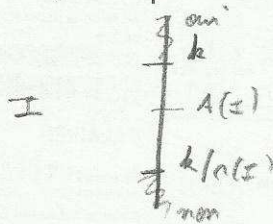 oui
k
I
A(I)
k/n(I)
non